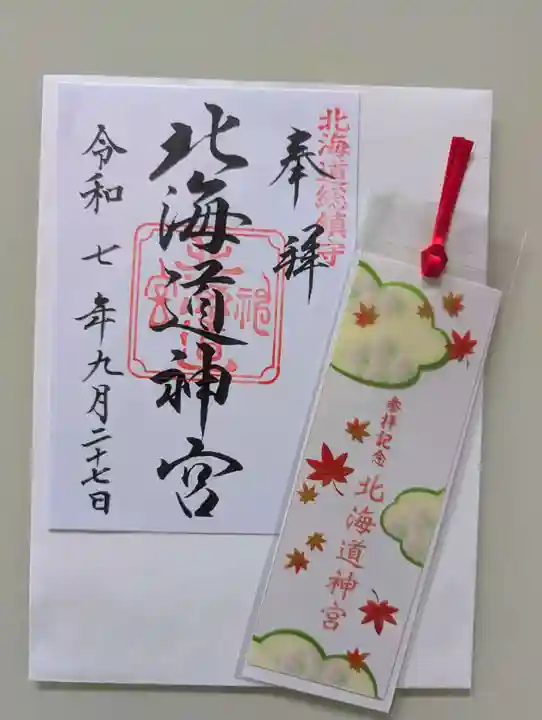 北海道総鎮守
奉拝
北海道神宮
令和七年九月二十七日
参拝記念
北海道神宮